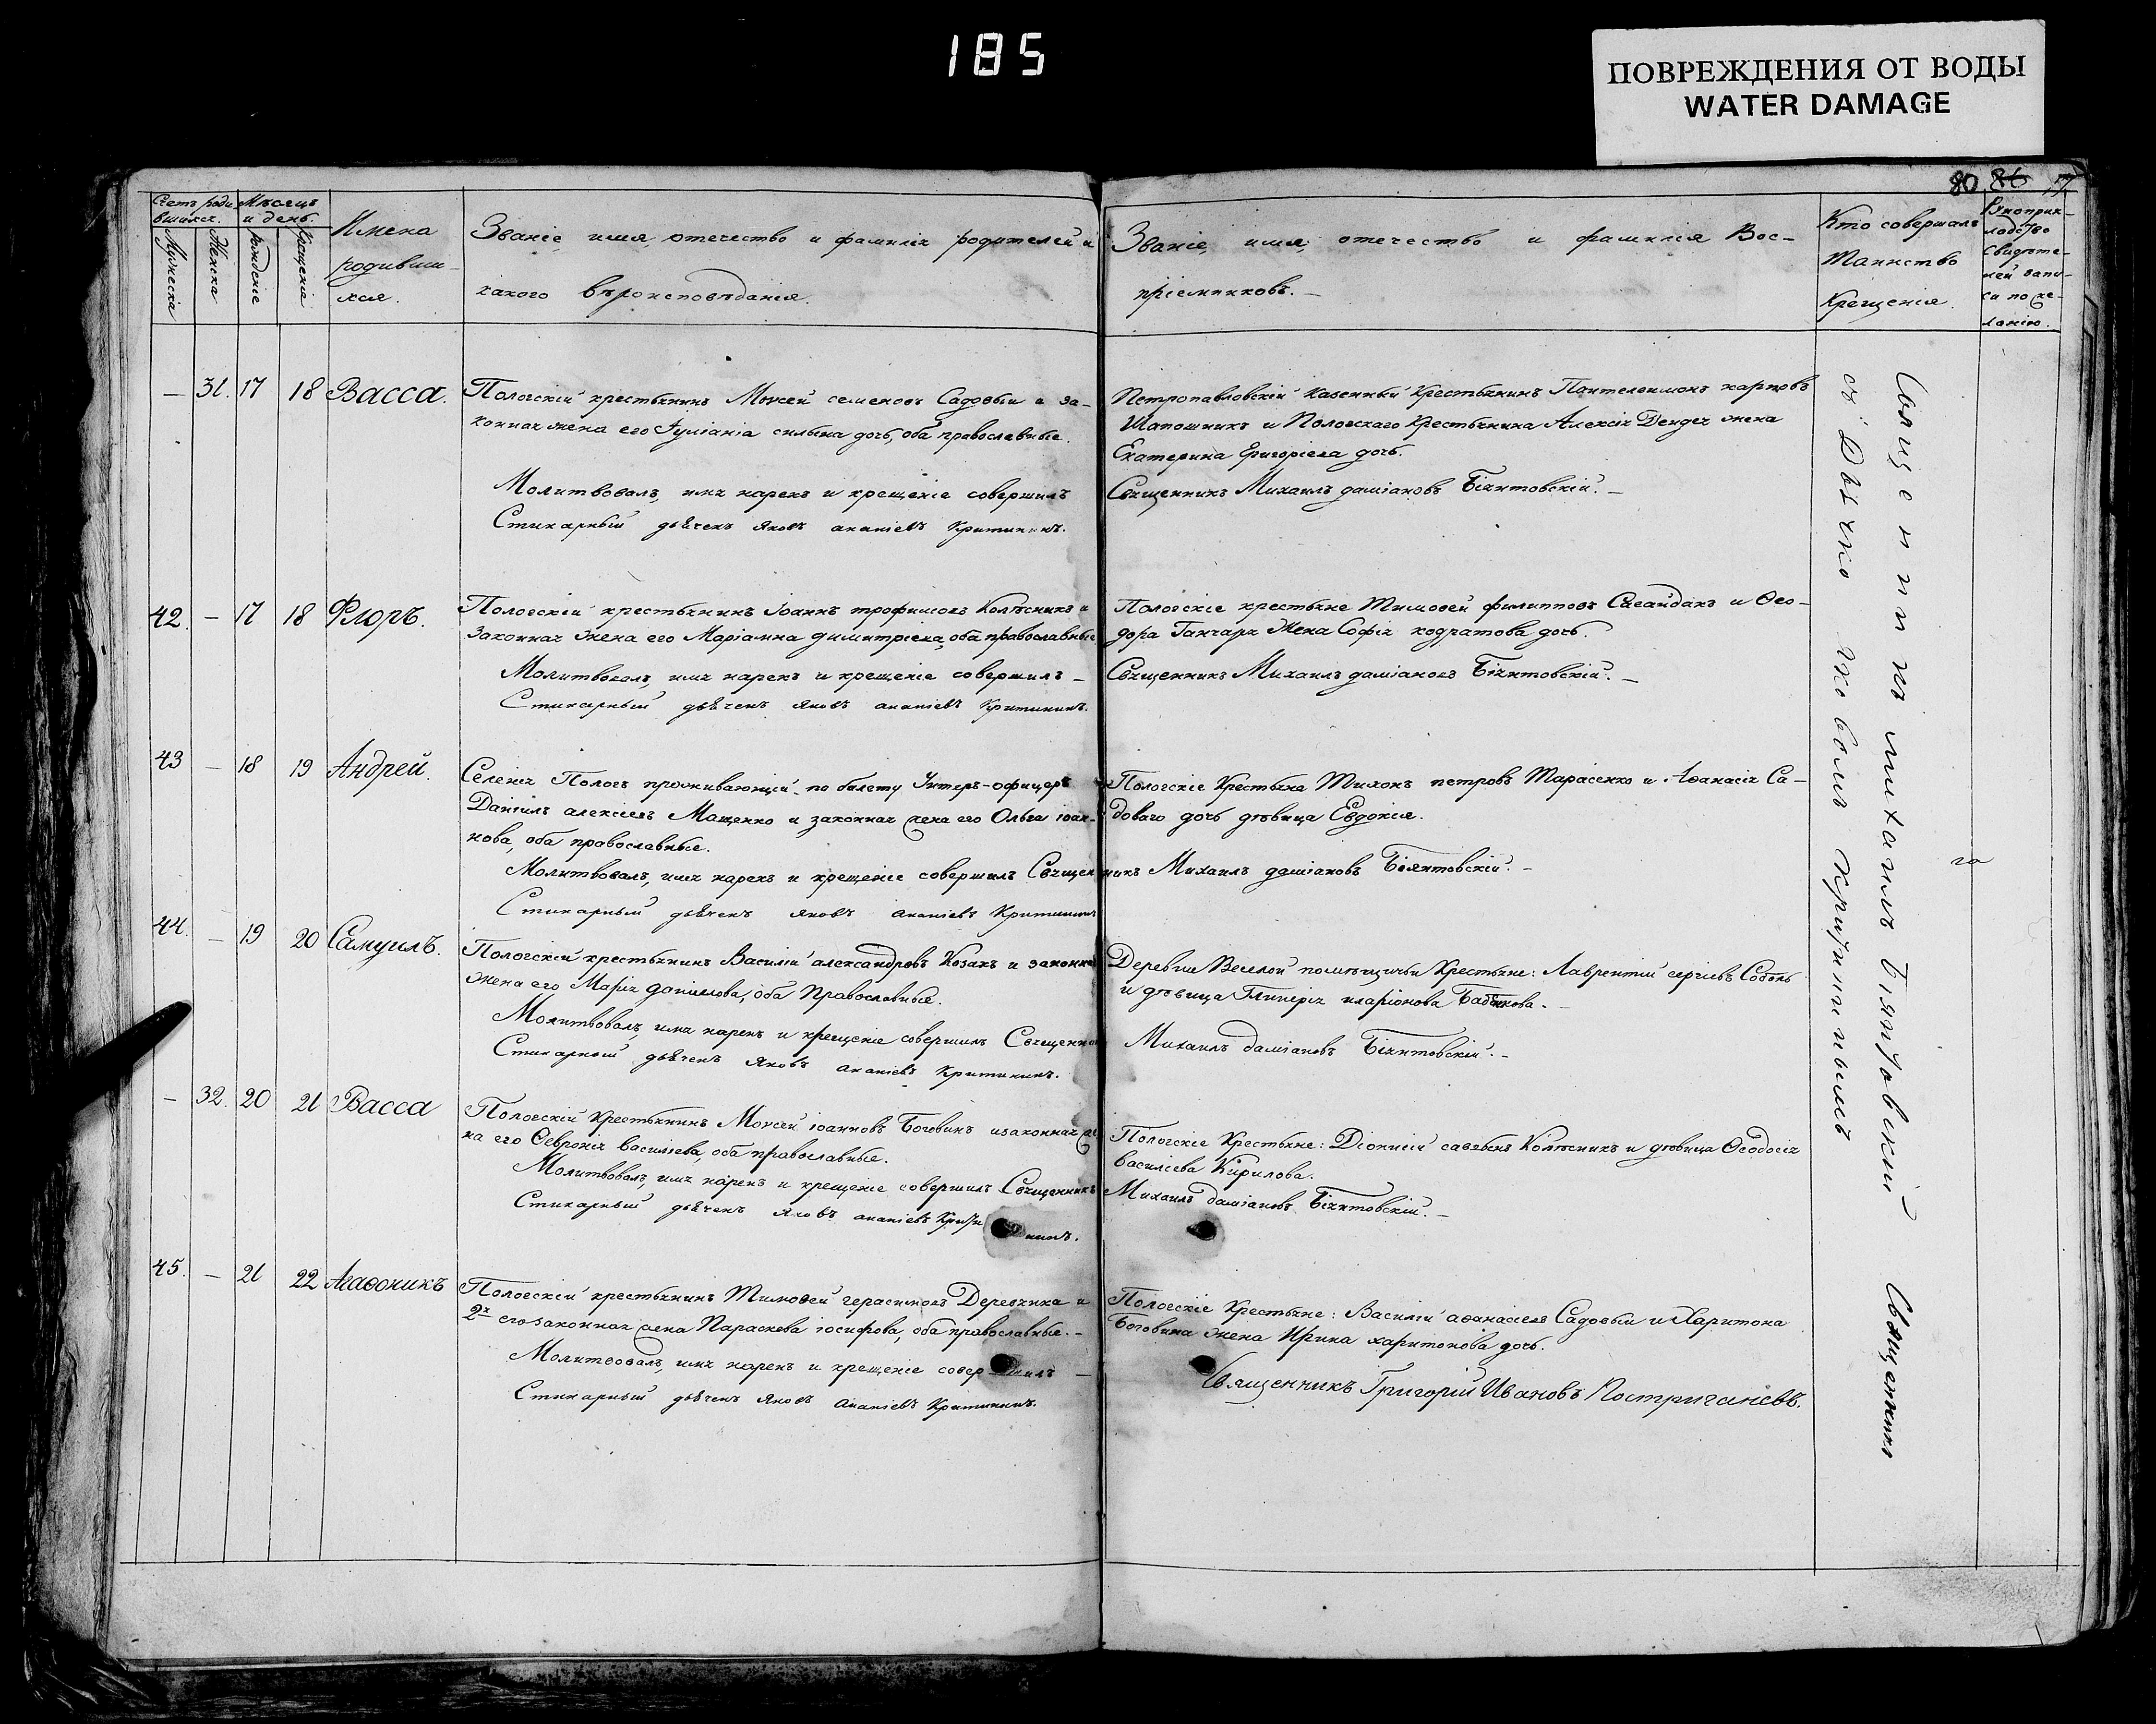 185
ПОВРЕЖДЕНИЯ ОТ ВОДЫ
WATER DAMAGE
80 86
Счетъ роди-
вшихся.
Мѣсяцъ
и день.
Мужеска
Женска
Рожденіе
Крещенія
Имена
родивши-
хся.
Званіе, имя, отечество и фамилія родителей и
какого вѣроисповѣданія.
Званіе, имя, отечество и фамилія Вос-
пріемниковъ.
Кто совершалъ
Таинство
Крещенія.
Рукоприк-
ладство
свидѣте-
лей запи-
си по же-
ланію.
— 31. 17 18 Васса.
Пологскій крестьянинъ Моисей семеновъ Садовый и за-
конная жена его Іуліанія силына дочь, оба православные.
Молитвовалъ, имя нарекъ и крещеніе совершилъ
Стихарный дьячекъ Яковъ ананіевъ Критининъ.
Петропавловскій Казенный Крестьянинъ Пантелеимонъ карповъ
Шапошникъ и Пологскаго Крестьянина Алексія Дендея жена
Екатерина Григоріева дочь.
Священникъ Михаилъ даміановъ Біянтовскій. —
42. — 17 18 Флоръ.
Пологскій крестьянинъ Іоаннъ трофимовъ Колѣсникъ и
законная жена его Маріамна димитріева, оба православные.
Молитвовалъ, имя нарекъ и крещеніе совершилъ —
Стихарный дьячекъ Яковъ ананіевъ Критининъ.
Пологскіе крестьяне Тимоѳей филипповъ Сагайдакъ и Ѳео-
дора Ганчара жена Софія кодратова дочь.
Священникъ Михаилъ даміановъ Біянтовскій. —
43 — 18 19 Андрей.
Селенія Пологъ проживающій по билету Унтеръ-офицеръ
Даніилъ алексіевъ Мащенко и законная жена его Ольга іоан-
нова, оба православные.
Молитвовалъ, имя нарекъ и крещеніе совершилъ Священ
Стихарный дьячекъ Яковъ ананіевъ Критининъ
Пологскіе Крестьяне Тихонъ петровъ Тарасенко и Аѳанасія Са-
доваго дочь дѣвица Евдокія.
никъ Михаилъ даміановъ Біянтовскій. —
44. — 19 20 Самуилъ.
Пологскій крестьянинъ Василій александровъ Козакъ и законна
жена его Марія даніилова, оба Православные.
Молитвовалъ, имя нарекъ и крещеніе совершилъ Священни
Стихарный дьячекъ Яковъ ананіевъ Критининъ.
Деревни Веселой помѣщичьи Крестьяне: Лаврентій сергіевъ Собонь
и дѣвица Гликерія иларіонова Бабенкова. —
Михаилъ даміановъ Біянтовскій. —
— 32. 20 21 Васса
Пологскій Крестьянинъ Моисей іоанновъ Боговинъ и законная же
на его Ѳевронія василіева, оба православные.
Молитвовалъ, имя нарекъ и крещеніе совершилъ Священникъ
Стихарный дьячекъ Яковъ ананіевъ Крити нинъ.
Пологскіе Крестьяне: Діонисій савѣвъ Колѣсникъ и дѣвица Ѳеодосія
василіева Кирилова.
Михаилъ даміановъ Біянтовскій. —
45. — 21 22 Агаѳоникъ
Пологскій крестьянинъ Тимоѳей герасимовъ Деревянка и
2я его законная жена Параскева іосифова, оба православные. —
Молитвовалъ, имя нарекъ и крещеніе совершилъ —
Стихарный дьячекъ Яковъ ананіевъ Критининъ.
Пологскіе Крестьяне: Василій аѳанасіевъ Садовый и Харитона
Боговина жена Ирина харитонова дочь.
Священникъ Григорій Ивановъ Постригачевъ.
Священникъ михаилъ Біянтовскій
съ Дьячкомъ Яковомъ Критининымъ
Священникъ
го